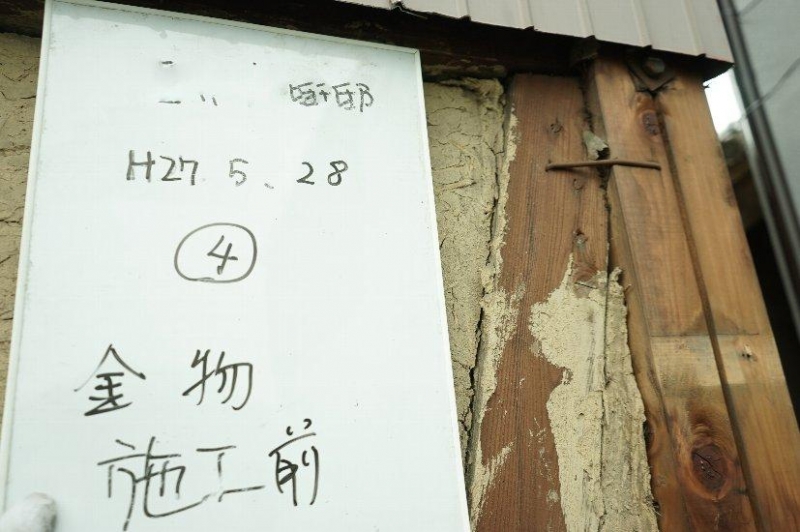 H27.5.28
④
金物
施工前